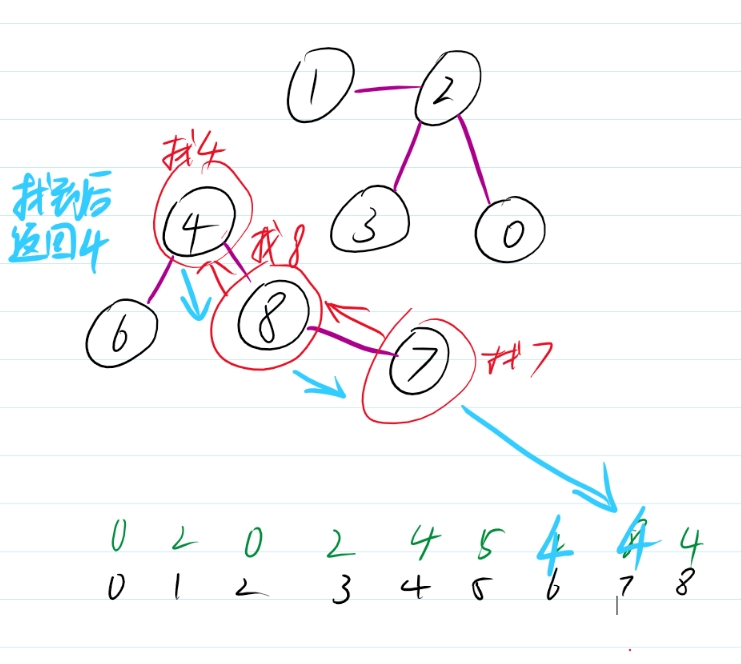 1 2
找4
找到后
返回4
4 3 0
找8
6 8 7 找7
0 2 0 2 4 5 4 4 4
0 1 2 3 4 5 6 7 8